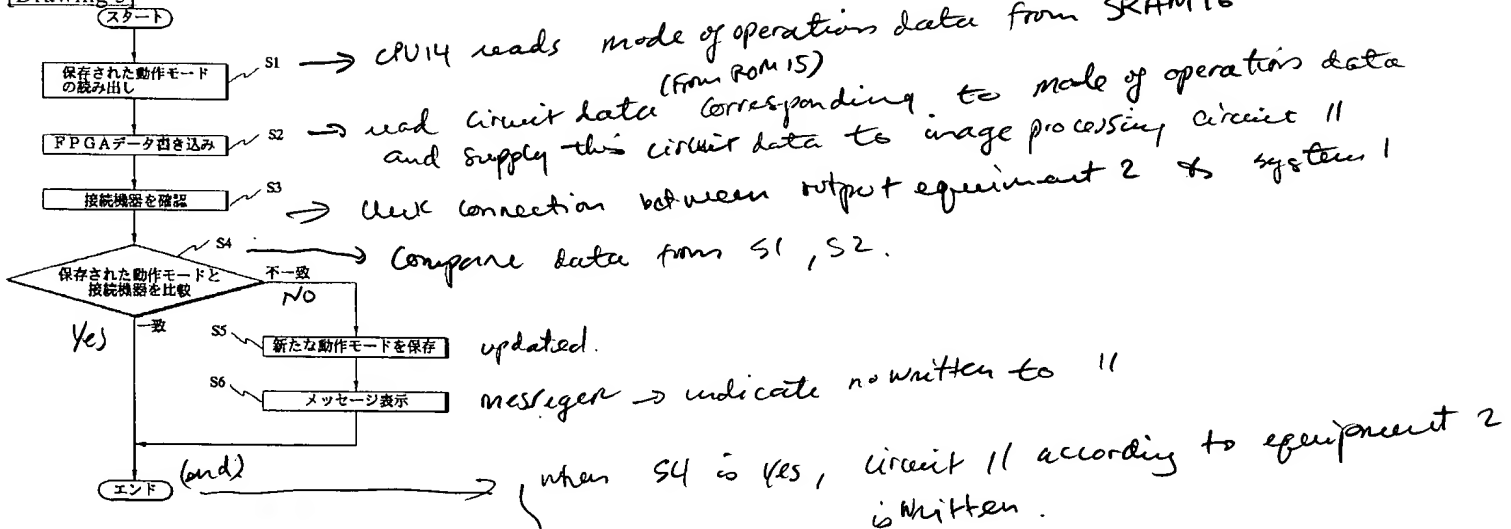 [Drawing 3]
スタート
保存された動作モード
の読み出し
S1 → CPU14 reads mode of operations data from SRAM16
(from ROM 15)
FPGAデータ書き込み
S2 → read circuit data corresponding to mode of operations data
and supply this circuit data to image processing circuit 11
接続機器を確認
S3 → check connection between output equipment 2 & system 1
S4 → Compare data from S1, S2.
保存された動作モードと
接続機器を比較
不一致
NO
Yes
一致
S5
新たな動作モードを保存
updated.
S6
メッセージ表示
messeger → indicate no written to 11
エンド
(end) → when S4 is yes, circuit 11 according to equipment 2
is written.